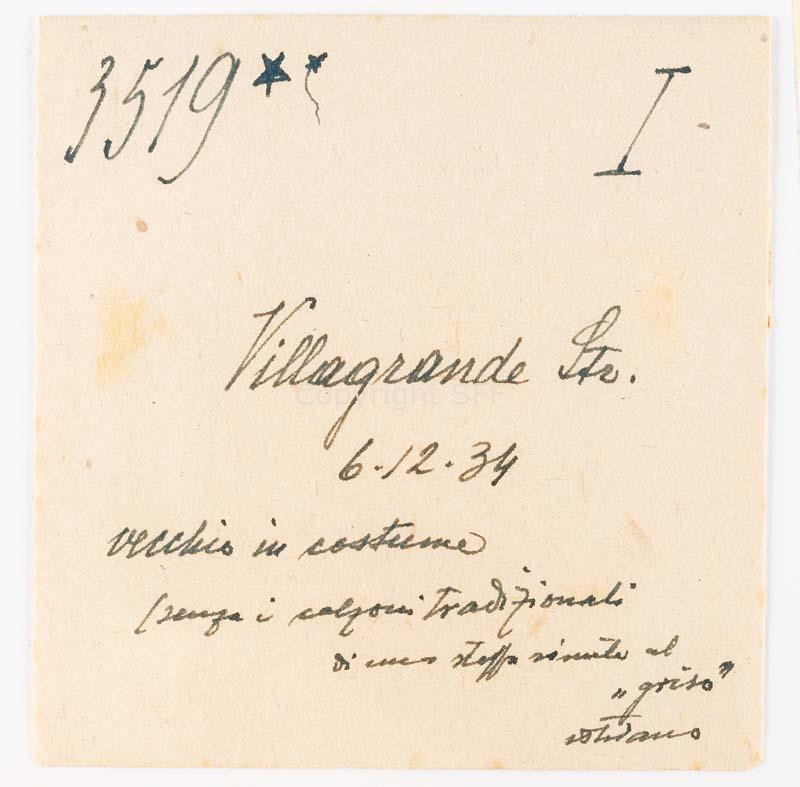 3519** I
Villagrande Str.
Copyright SFF
6.12.34
vecchio in costume
(senza i calzoni tradizionali
di una stoffa simile al
„griso"
istriano